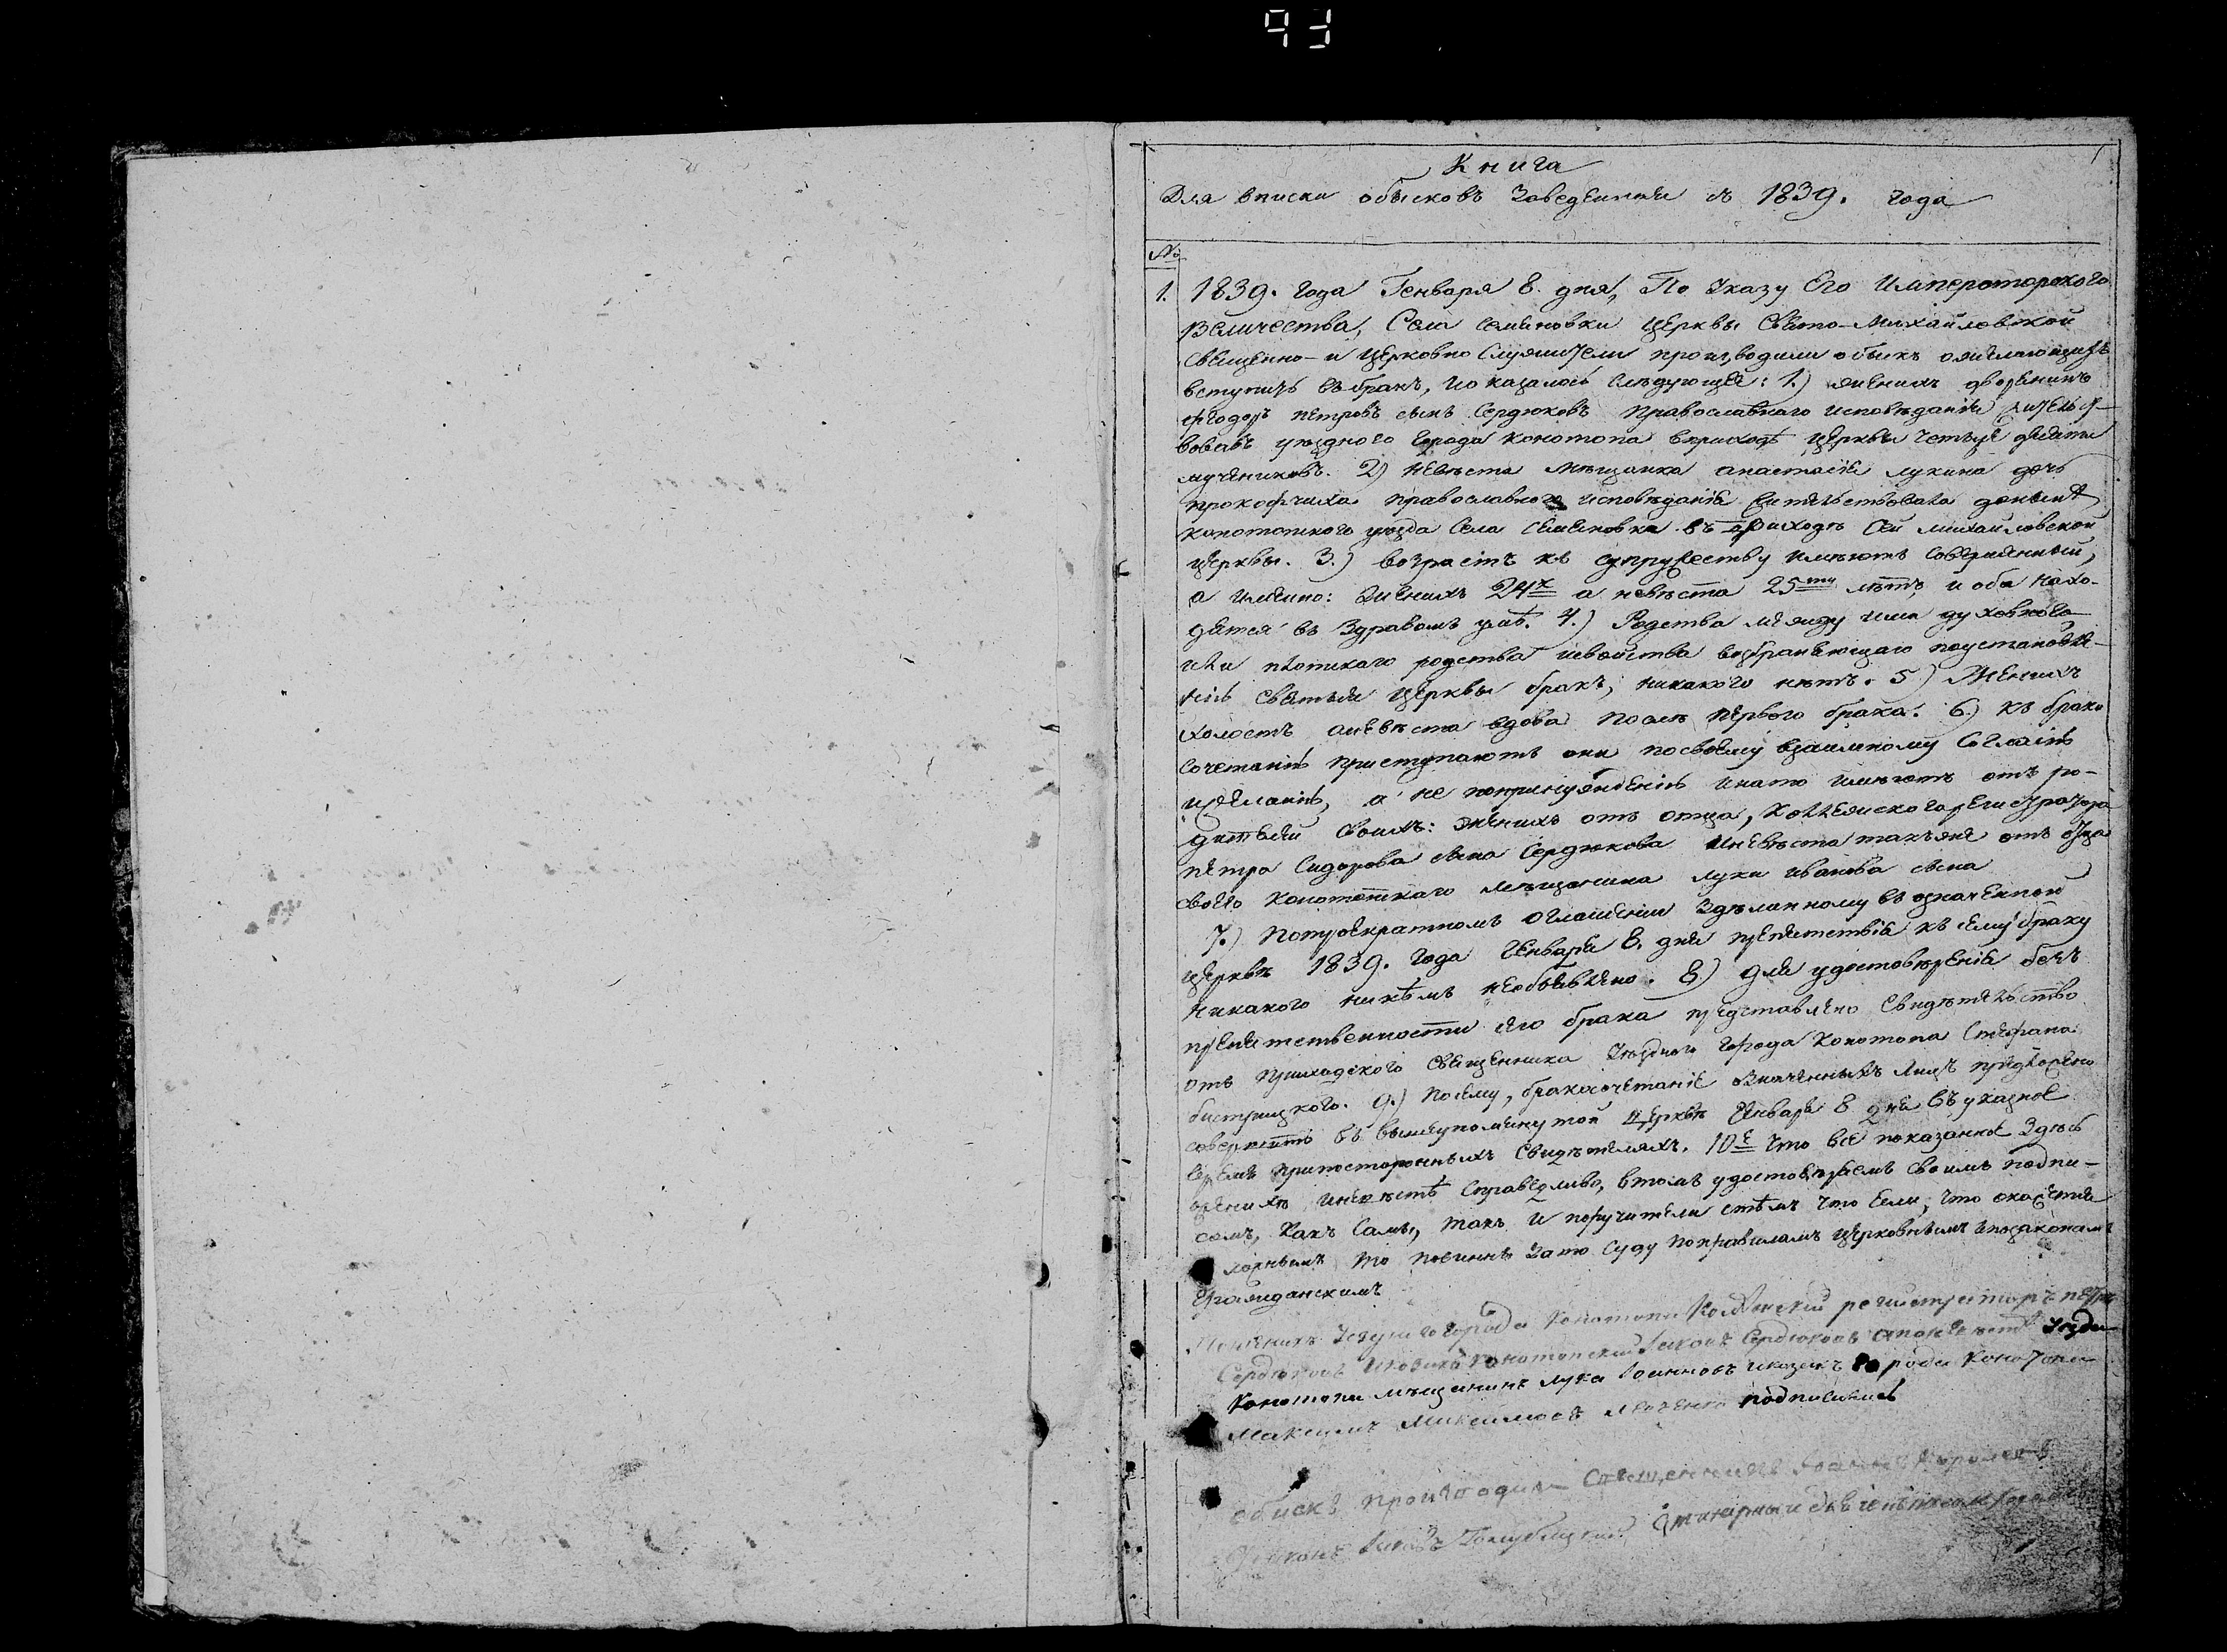 93
1
Книга
Для вписки обысковъ Заведенная съ 1839. года
№
1. 1839. года Генваря 8. дня, По Указу Его Императорскаго
Величества, Села Семяновки Церквы Свято-Михайловской
Священно- и Церковно Служители производили обыскъ о желающихъ
вступить въ бракъ, и оказалось следующее: 1.) Женихъ дворянинъ
Феодоръ Петровъ сынъ Сердюковъ Православнаго исповѣданія жительст-
вовавъ уѣзднаго Города Конотопа в приходѣ Церквы Четыре десяти
мучениковъ. 2) Невѣста Мѣщанка Анастасія Лукина дочь
Прокофчиха Православнаго исповѣданія жительствовала доныне
Конотопского уѣзда Села Семеновка въ приходѣ Сей Михайловской
Церквы. 3.) Возрастъ къ супружеству имѣютъ совершенный,
а имянно: Женихъ 24х а невѣста 25ти лѣтъ, и оба нахо-
дятся въ здравомъ умѣ. 4.) Родства между ими духовного
или плотскаго родства и свойства возбраняющаго по установле-
нію Святыя Церквы бракъ, никакого нѣтъ. 5) Женихъ
холостъ а невѣста вдова после первого брака. 6.) къ брако
сочетанію приступаютъ они по своему взаимному Согласію
и желанію, а не по принужденію и на то имѣютъ отъ ро-
дителей своихъ: Женихъ отъ отца, Коллежского регистратора
Петра Сидорова сына Сердюкова и невѣста такъже отъ отца
своего Конотопскаго мѣщанина Луки Иванова сына
7.) По троекратномъ оглашеніи Здѣланному въ означенной
Церквѣ 1839. года Генваря 8. дня препятствія къ сему браку
никакого никѣмъ необъявлено. 8) Для удостовѣренія безъ
препятственности сего брака представлено Свидѣтельство
отъ Приходского Священника Уѣздного Города Конотопа Стефана
Быстрицкого. 9.) Посему, бракосочетаніе означенныхъ лицъ предположено
совершить въ вышеупомянутой Церквѣ Генваря 8 дня въ указное
время при постороннихъ Свидѣтеляхъ. 10е Что все показанное Здѣсь
о женихѣ и невѣстѣ Справедливо, в томъ удостовѣряемъ своимъ подпи-
сомъ, Какъ Сами, такъ и поручители стѣмъ что если, что окажется
ложнымъ то повинны за то Суду по правиламъ церковнымъ и по законамъ
Гражданскимъ
По женихѣ города Конотопа Коллежский регистраторъ Петръ
Сердюковъ Конотопский Яковъ Сердюковъ а по невѣстѣ
Конотопа мѣщанинъ Лука Иоанновъ и козакъ города Конотопа
Максимъ Максимовъ подписались
Обискъ производили Священникъ Иоаннъ
Диаконъ Яковъ Голубицкий